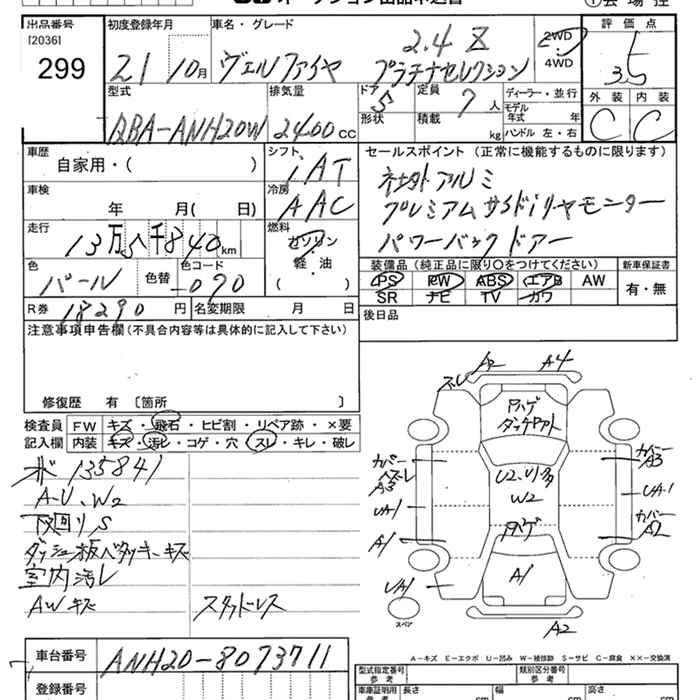 出品番号 [2036] 299
初度登録年月 21 10月
車名・グレード 2.4 Z
ヴェルファイヤ プラチナセレクション
2WD・4WD
評価点 3.5
外装 C 内装 C
型式 QBA-ANH20W
排気量 2400cc
ドア 5 形状
定員 7人 積載 kg
ディーラー・並行
モデル年式 年
ハンドル 左・右
車歴 自家用・( )
シフト IAT
車検 年 月( 日)
冷房 AAC
走行 13万5千840km
燃料 ガソリン 軽・油 ( )
色 パール 色替 色コード -070
R券 18290円 名変期限 月 日
セールスポイント (正常に機能するものに限ります)
社外アルミ
プレミアムサイドリヤモニター
パワーバックドアー
装備品(純正品に限り○をつけてください) 新車保証書
PS PW ABS エアB AW 有・無
SR ナビ TV カワ
後日品
注意事項申告欄(不具合内容等は具体的に記入して下さい)
修復歴 有 〔箇所 〕
検査員 FW キズ・飛石・ヒビ割・リペア跡・×要
記入欄 内装 キズ・汚レ・コゲ・穴・スレ・キレ・破レ
135841
A-U、W2
下回りS
ダッシュ板ベタツキ、キズ
室内汚レ
AWキズ スタッドレス
スレ A2 A4
ハゲ
カバー
A3
カバー
A3
U2、U多
W2
UA1 UA1
カバー
A2
A1
ハゲ
A1
UA1
スペア
A2
A-キズ E-エクボ U-凹み W-補修跡 S-サビ C-腐食 ××-交換済
車台番号 ANH20-8073711
登録番号
型式指定番号 参考
類別区分番号 参考
車庫証明用 参考 長さ cm 幅 cm 高さ cm